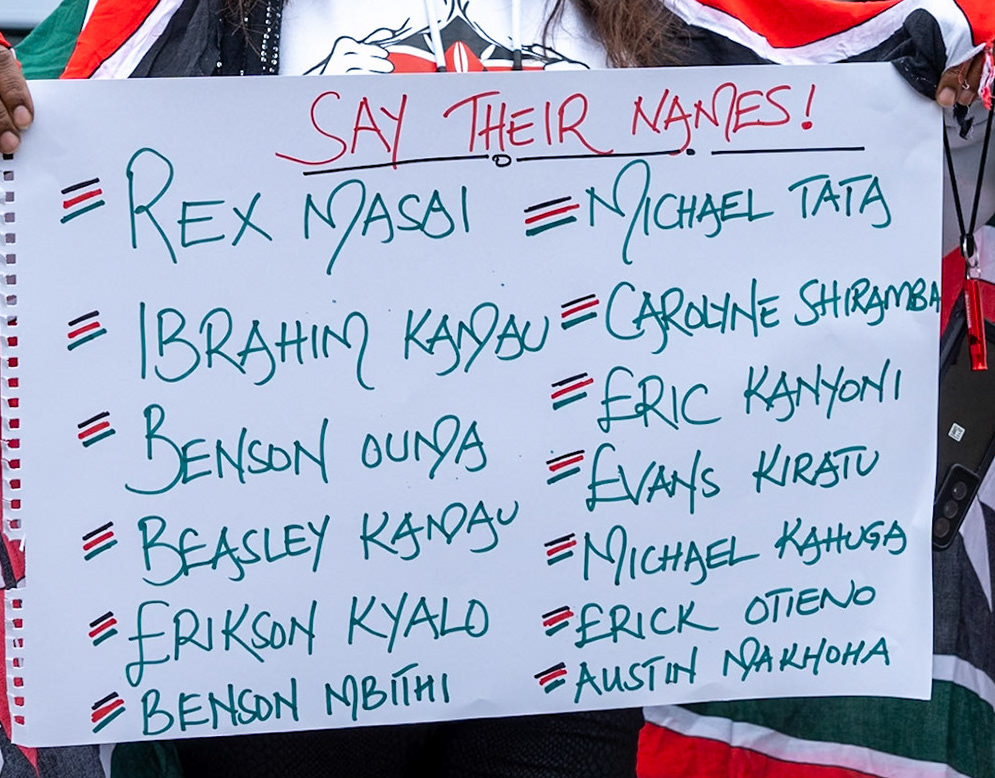 SAY THEIR NAMES!
REX MASAI
IBRAHIM KAMAU
BENSON OUMA
BEASLEY KAMAU
ERIKSON KYALO
BENSON MBITHI
MICHAEL TATA
CAROLYNE SHIRAMBA
ERIC KANYONI
EVANS KIRATU
MICHAEL KAHUGA
ERICK OTIENO
AUSTIN MAKHOHA